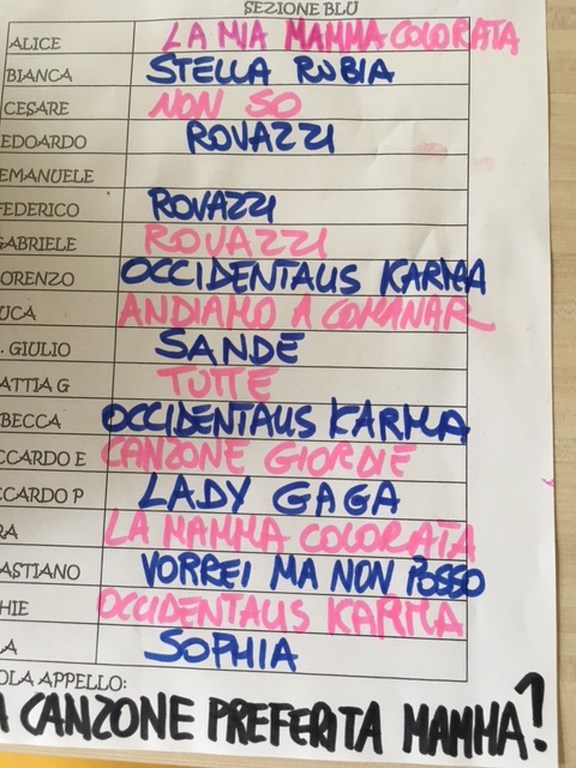 SEZIONE BLU
ALICE LA MIA MAMMA COLORATA
BIANCA STELLA RUBIA
CESARE NON SO
EDOARDO ROVAZZI
EMANUELE
FEDERICO ROVAZZI
GABRIELE ROVAZZI
ORENZO OCCIDENTALIS KARMA
UCA ANDIAMO A COMANAR
. GIULIO SANDE
ATTIA G TUTTE
BECCA OCCIDENTALIS KARMA
CCARDO E CANZONE GIORDIE
CCARDO P LADY GAGA
RA LA MAMMA COLORATA
ASTIANO VORREI MA NON POSSO
HIE OCCIDENTALIS KARMA
A SOPHIA
OLA APPELLO:
A CANZONE PREFERITA MAMMA?